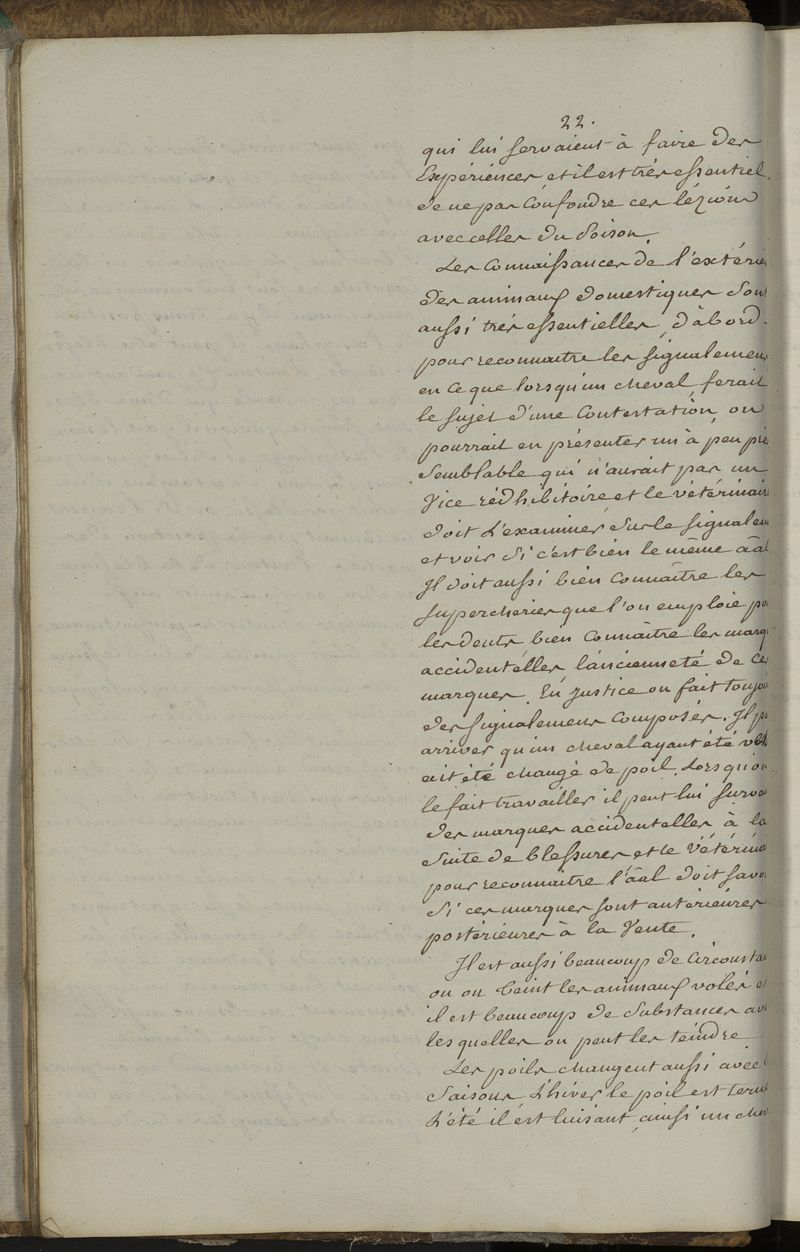 22.
qui lui servaient à faire des
Expériences et il est très essentiel
de ne pas Confondre ces lézions
avec celles du Poison.
Les Connaissances de l'extérie
des animaux domestiques Sont
aussi très essentielles, d'abord
pour reconnaitre les signalemen
en Ce que lorsqu'un cheval ferait
le sujet d'une Contestation, on
pourrait en présenter un à peu prè
Semblable qui n'aurait pas un
Vice rédhibitoire et le vétérinair
doit L'examiner Sur le signalem
et voir Si c'est bien le même āal
Il doit aussi bien Connaitre les
supercheries que l'on emploie po
les dents bien Connaitre les marq
accidentelles l'ancienneté de Ce
marques. En justice on fait toujou
des signalemens Composés. Il p
arriver qu'un cheval ayant été ve
ait été changé de poil. Lorsqu'on
le fait travailler il peut lui surve
des marques accidentelles à la
Suite de blessures et le Vétérina
pour reconnaitre l'āal doit savo
Si ces marques sont antérieures
postérieures à la Vente.
Il est aussi beaucoup de Circonsta
ou on teint les animaux volés et
il est beaucoup de Substances av
lesquelles on peut les teindre
Les poils changent aussi avec
Saisons L'hiver le poil est tern
L'été il est luisant, ainsi un che